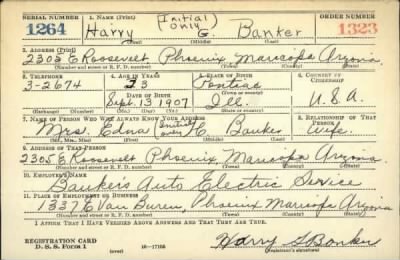 SERIAL NUMBER 1. NAME (Print) (Initial only) ORDER NUMBER
1264 Harry G. Banker 1323
(First) (Middle) (Last)
2. ADDRESS (Print)
2305 E Roosevelt Phoenix, Maricopa Arizona
(Number and street or R. F. D. number) (Town) (County) (State)
3. TELEPHONE 4. AGE IN YEARS 5. PLACE OF BIRTH 6. COUNTRY OF CITIZENSHIP
3-2674 33 Pontiac
DATE OF BIRTH (Town or county)
Sept. 13 1907 Ill. U.S.A
(Exchange) (Number) (Mo.) (Day) (Yr.) (State or country)
7. NAME OF PERSON WHO WILL ALWAYS KNOW YOUR ADDRESS 8. RELATIONSHIP OF THAT PERSON
Mrs. Edna (Initial only) H Banker Wife
(Mr., Mrs., Miss) (First) (Middle) (Last)
9. ADDRESS OF THAT PERSON
2305 E Roosevelt Phoenix, Maricopa Arizona
(Number and street or R. F. D. number) (Town) (County) (State)
10. EMPLOYER'S NAME
Bankers Auto Electric Service
11. PLACE OF EMPLOYMENT OR BUSINESS
1337 E Van Buren, Phoenix, Maricopa Arizona
(Number and street or R. F. D. number) (Town) (County) (State)
I AFFIRM THAT I HAVE VERIFIED ABOVE ANSWERS AND THAT THEY ARE TRUE.
REGISTRATION CARD
D. S. S. FORM 1 (over) 16-17105 Harry G Banker
(Registrant's signature)